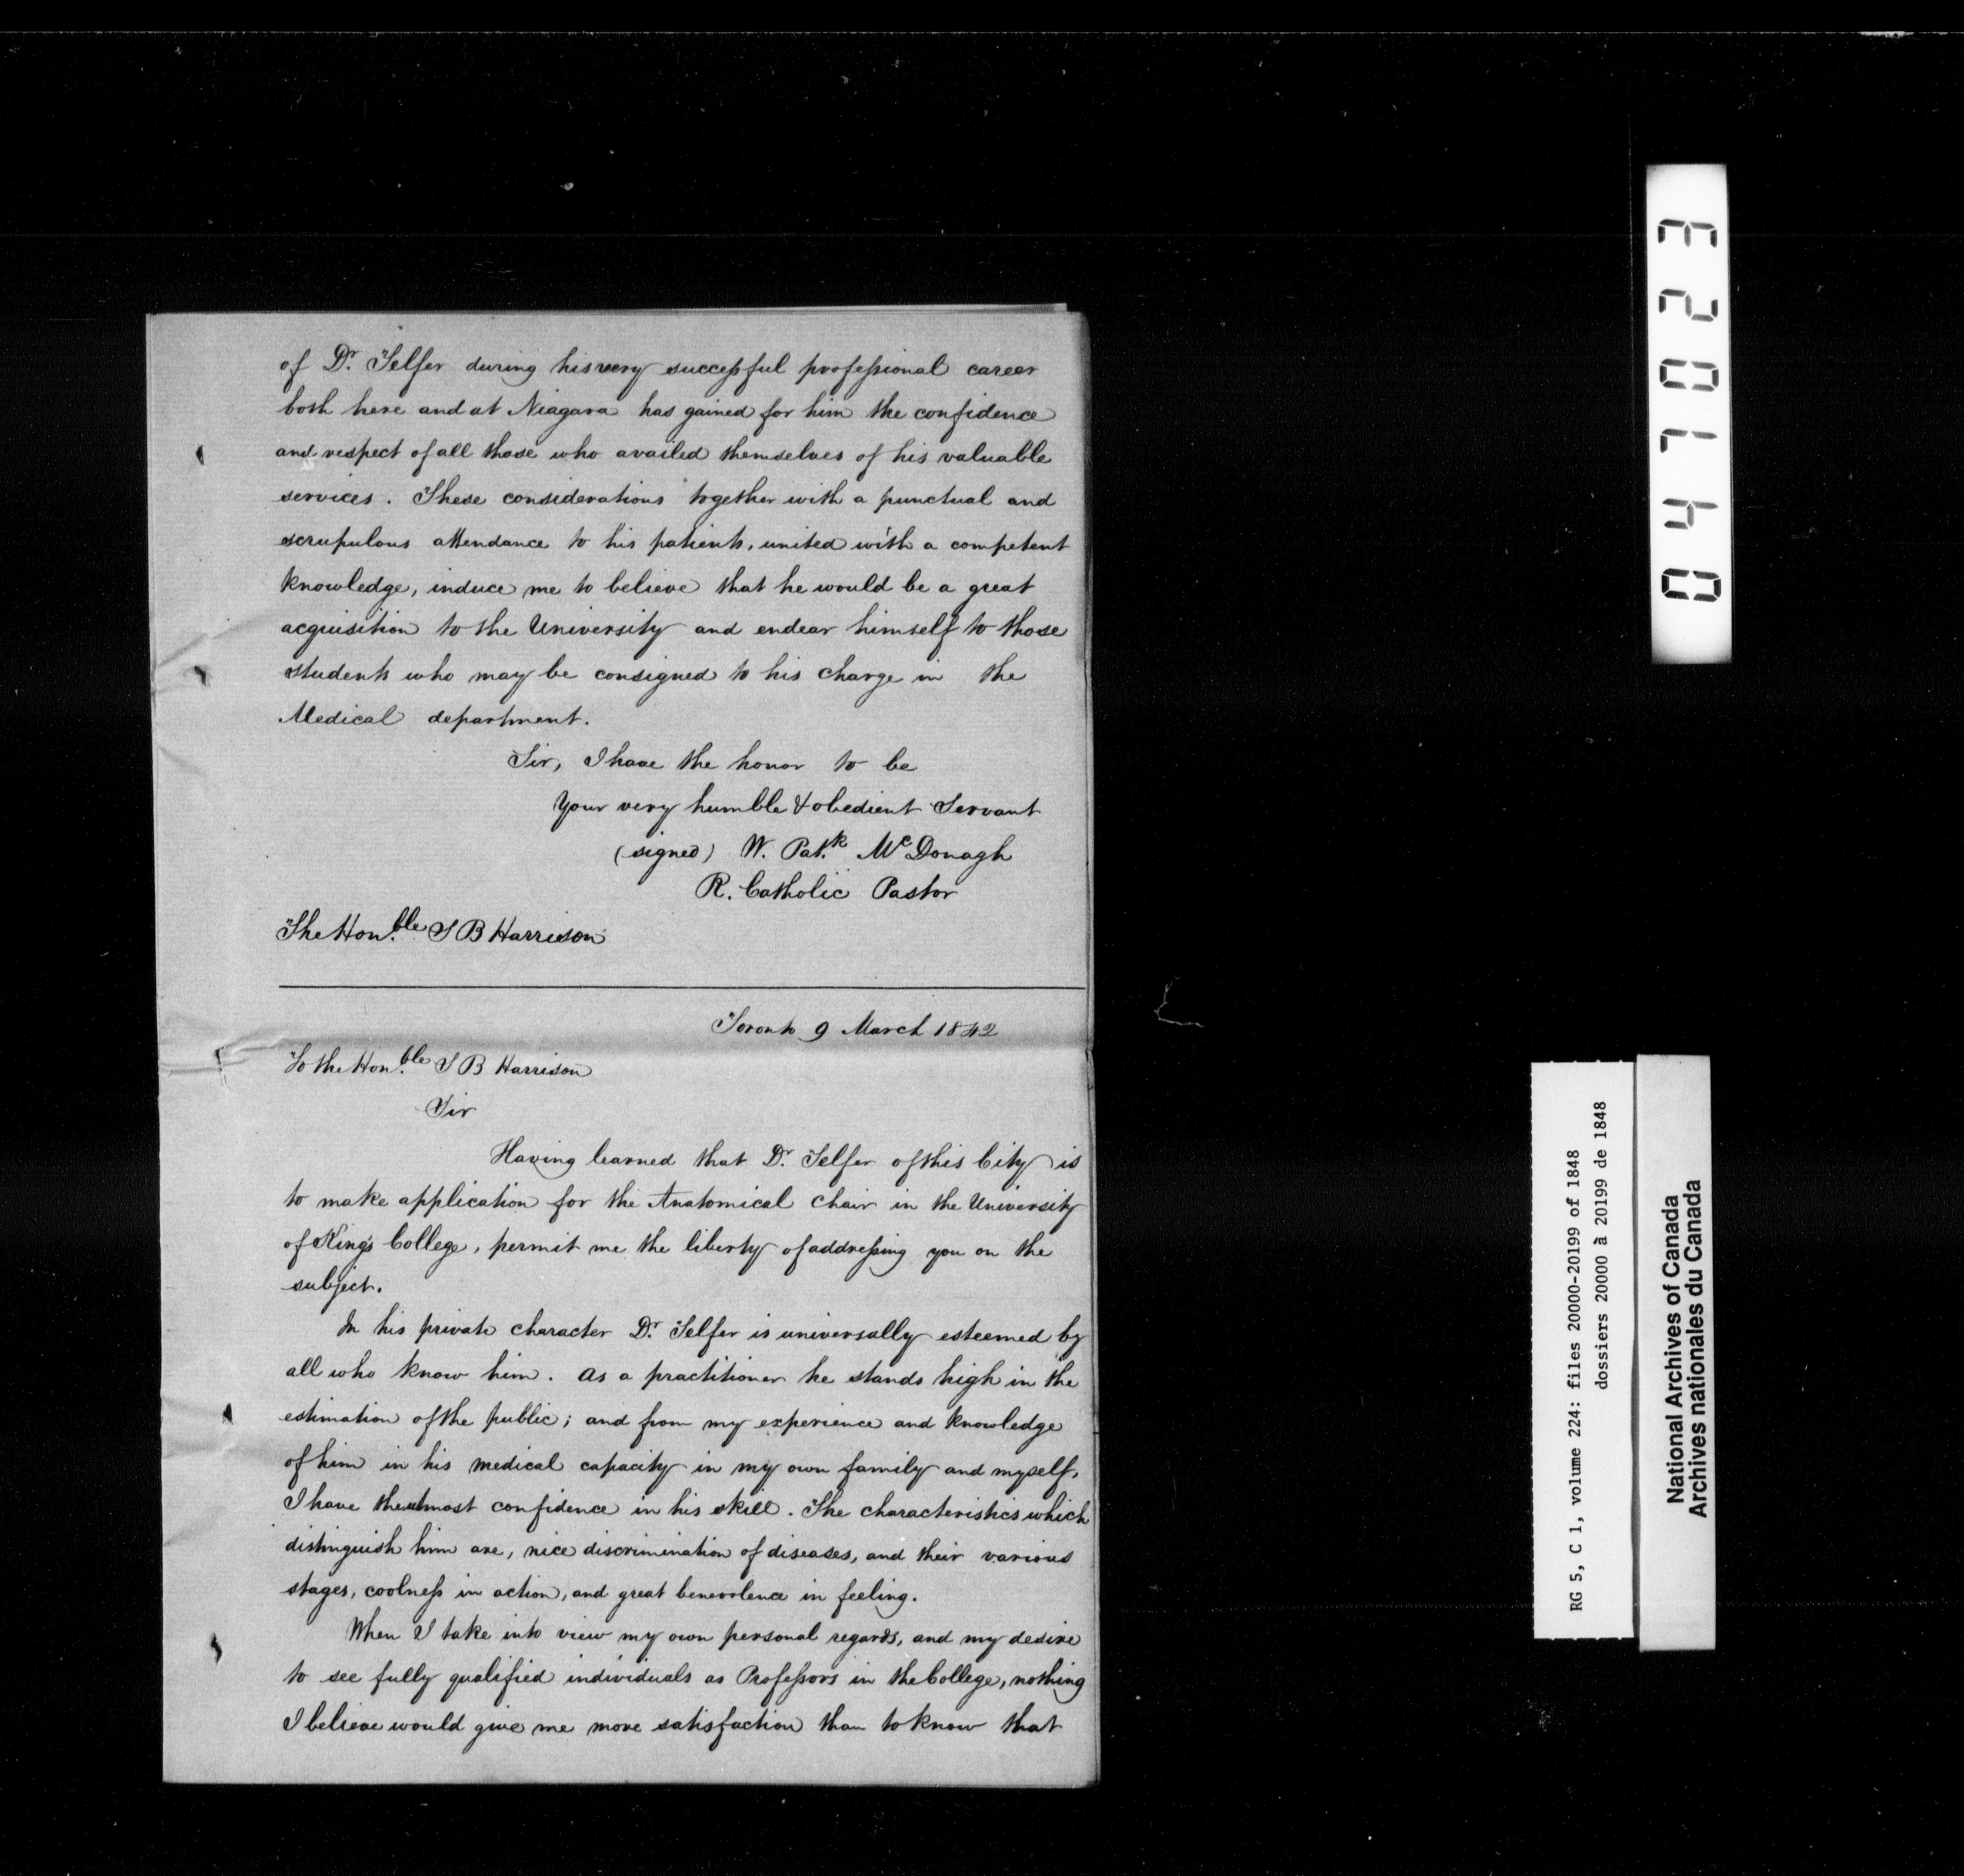 of Dr. Telfer during his very successful professional career
both here and at Niagara has gained for him the confidence
and respect of all those who availed themselves of his valuable
services. These considerations together with a punctual and
scrupulous attendance to his patients, united with a competent
knowledge, induce me to believe that he would be a great
acquisition to the University and endear himself to those
students who may be consigned to his charge in the
Medical department.
Sir, I have the honor to be
Your very humble & obedient Servant
(signed) W. Patk. McDonagh
R. Catholic Pastor
The Honble. S B Harrison
Toronto 9 March 1842
To the Honble. S B Harrison
Sir
Having learned that Dr. Telfer of this City is
to make application for the Anatomical Chair in the University
of King's College, permit me the liberty of addressing you on the
subject.
In his private character Dr. Telfer is universally esteemed by
all who know him. As a practitioner he stands high in the
estimation of the public; and from my experience and knowledge
of him in his medical capacity in my own family and myself,
I have the utmost confidence in his skill. The characteristics which
distinguish him are, nice discrimination of diseases, and their various
stages, coolness in action, and great benevolence in feeling.
When I take into view my own personal regards, and my desire
to see fully qualified individuals as Professors in the College, nothing
I believe would give me more satisfaction than to know that
041023
RG 5, C 1, volume 224: files 20000-20199 of 1848
dossiers 20000 à 20199 de 1848
National Archives of Canada
Archives nationales du Canada